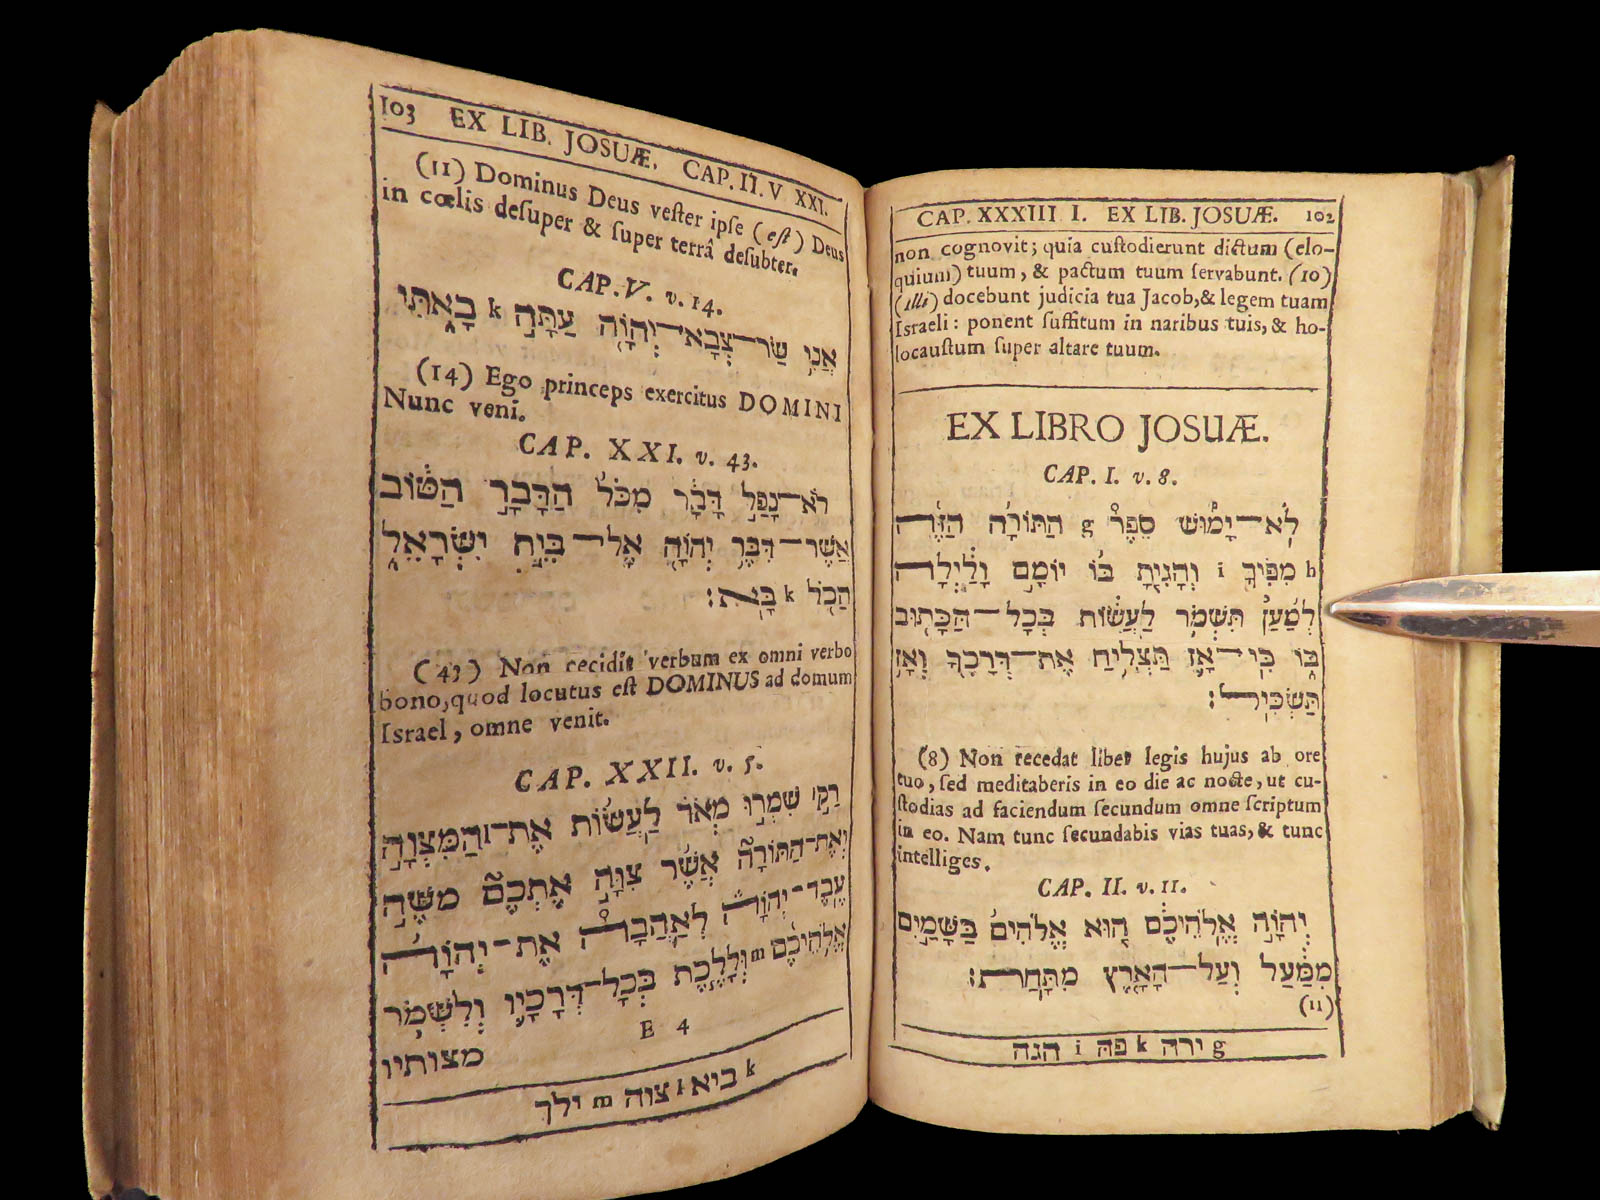 CAP. XXXIII I. EX LIB. JOSUÆ. 102
non cognovit; quia cuſtodierunt dictum (elo-
quium) tuum, & pactum tuum ſervabunt. (10)
(illi) docebunt judicia tua Jacob, & legem tuam
Israeli: ponent ſuffitum in naribus tuis, & ho-
locauſtum ſuper altare tuum.
EX LIBRO JOSUÆ.
CAP. I. v. 8.
לֹֽא־יָמ֡וּשׁ סֵפֶר֩ g הַתּוֹרָ֨ה הַזֶּ֜ה
h מִפִּ֗יךָ i וְהָגִ֤יתָ בּוֹ֙ יוֹמָ֣ם וָלַ֔יְלָה
לְמַ֙עַן֙ תִּשְׁמֹ֣ר לַעֲשׂ֔וֹת בְּכָל־הַכָּת֖וּב
בּ֑וֹ כִּי־אָ֛ז תַּצְלִ֥יחַ אֶת־דְּרָכֶ֖ךָ וְאָ֥ז
תַּשְׂכִּֽיל׃
(8) Non recedat liber legis hujus ab ore
tuo, ſed meditaberis in eo die ac nocte, ut cu-
ſtodias ad faciendum ſecundum omne ſcriptum
in eo. Nam tunc ſecundabis vias tuas, & tunc
intelliges.
CAP. II. v. 11.
יְהוָֹ֣ה אֱלֹֽהֵיכֶ֗ם ה֤וּא אֱלֹהִים֙ בַּשָּׁמַ֣יִם
מִמַּ֔עַל וְעַל־הָאָ֖רֶץ מִתָּֽחַת׃
(11)
g ירה k פה i הגה
103 EX LIB. JOSUÆ. CAP. II. V XXI.
(11) Dominus Deus veſter ipſe (eſt) Deus
in cœlis deſuper & ſuper terrâ deſubter.
CAP. V. v. 14.
אֲנִ֥י שַׂר־צְבָא־יְהוָֹ֖ה עַתָּ֣ה k בָ֑אתִי
(14) Ego princeps exercitus DOMINI
Nunc veni.
CAP. XXI. v. 43.
לֹא־נָפַ֣ל דָּבָ֔ר מִכֹּל֙ הַדָּבָ֣ר הַטּ֔וֹב
אֲשֶׁר־דִּבֶּ֥ר יְהוָֹ֖ה אֶל־בֵּ֣ית יִשְׂרָאֵ֑ל
הַכֹּ֖ל k בָּֽא׃
(43) Non cecidit verbum ex omni verbo
bono, quod locutus eſt DOMINUS ad domum
Israel, omne venit.
CAP. XXII. v. 5.
רַק֣ שִׁמְר֣וּ מְאֹ֗ד לַעֲשׂ֨וֹת אֶת־הַמִּצְוָ֣ה
וְאֶת־הַתּוֹרָה֮ אֲשֶׁ֣ר צִוָּ֣ה אֶתְכֶם֮ משֶׁ֣ה
עֶֽבֶד־יְהוָֹה֒ לְ֠אַהֲבָה אֶת־יְהוָֹ֨ה
אֱלֹֽהֵיכֶ֜ם m וְלָלֶ֧כֶת בְּכָל־דְּרָכָ֛יו וְלִשְׁמֹ֥ר
E 4
מצותיו
k ביא l צוה m ילך